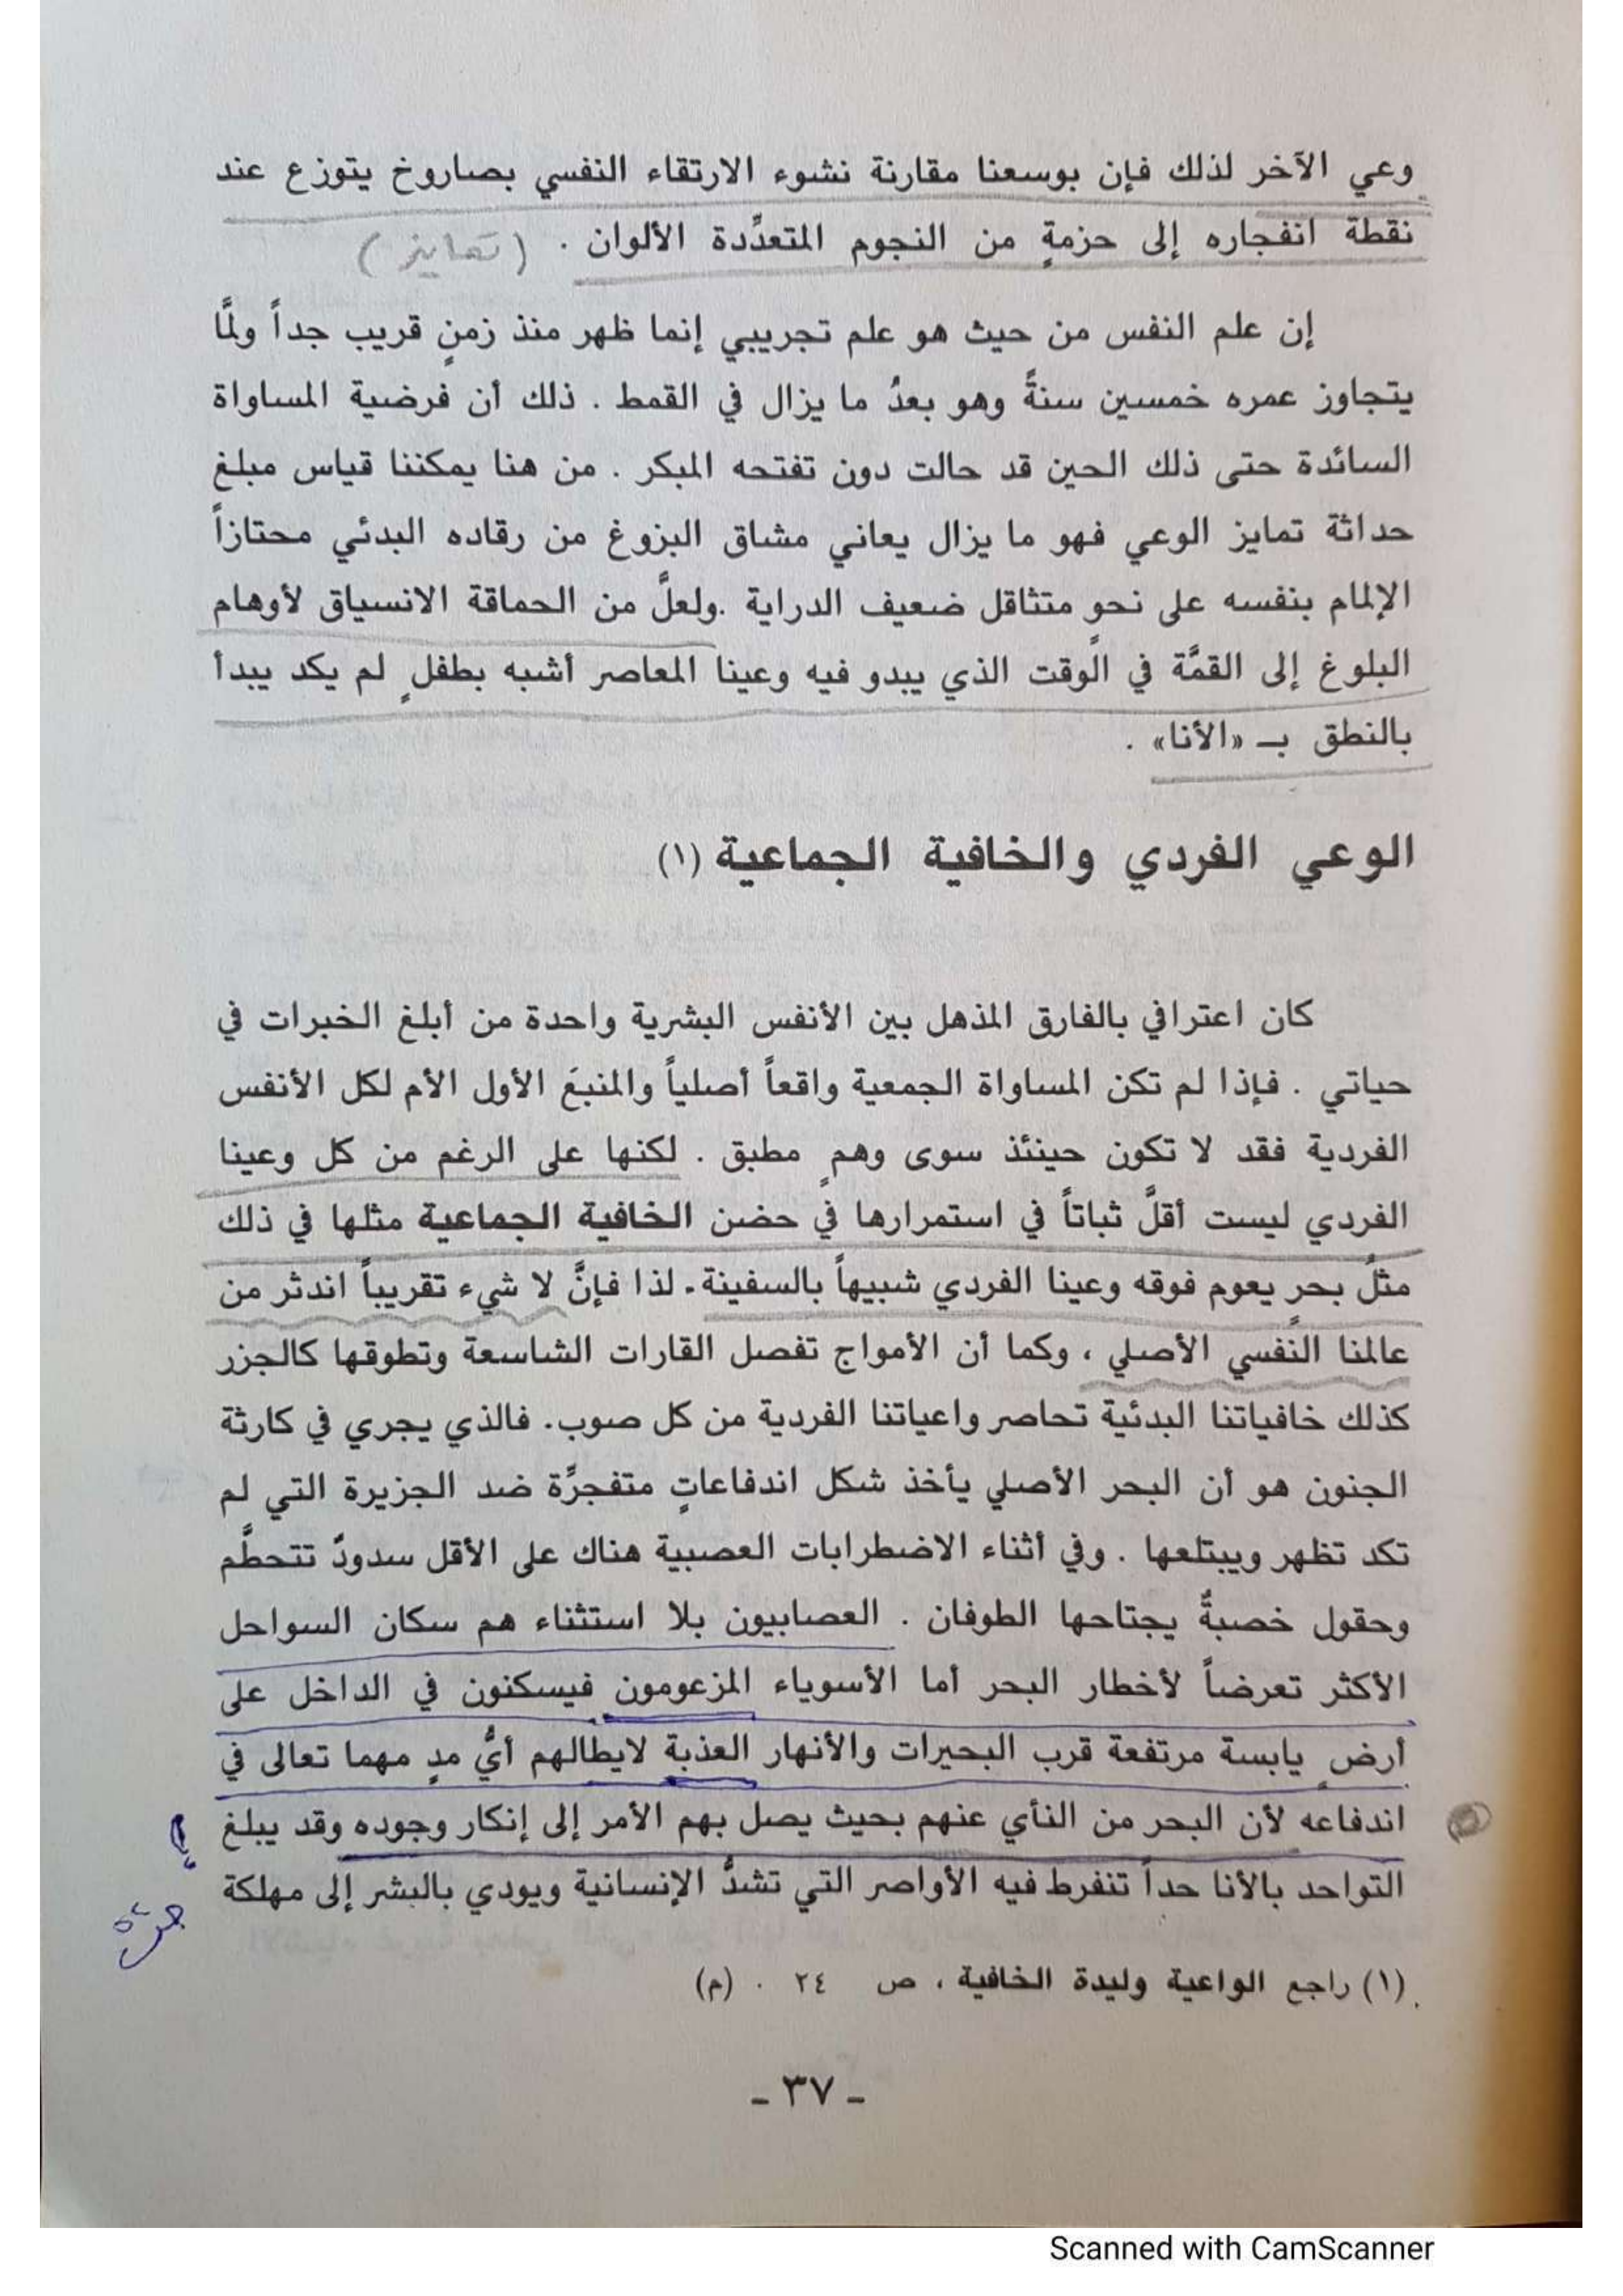 وعي الآخر لذلك فإن بوسعنا مقارنة نشوء الارتقاء النفسي بصاروخ يتوزع عند
نقطة انفجاره إلى حزمةٍ من النجوم المتعدِّدة الألوان . (تمايز)
إن علم النفس من حيث هو علم تجريبي إنما ظهر منذ زمنٍ قريب جداً ولمَّا
يتجاوز عمره خمسين سنةً وهو بعدُ ما يزال في القمط . ذلك أن فرضية المساواة
السائدة حتى ذلك الحين قد حالت دون تفتحه المبكر . من هنا يمكننا قياس مبلغ
حداثة تمايز الوعي فهو ما يزال يعاني مشاق البزوغ من رقاده البدئي محتازاً
الإلمام بنفسه على نحوٍ متثاقل ضعيف الدراية .ولعلَّ من الحماقة الانسياق لأوهام
البلوغ إلى القمَّة في الوقت الذي يبدو فيه وعينا المعاصر أشبه بطفلٍ لم يكد يبدأ
بالنطق بـ «الأنا» .
الوعي الفردي والخافية الجماعية (١)
كان اعترافي بالفارق المذهل بين الأنفس البشرية واحدة من أبلغ الخبرات في
حياتي . فإذا لم تكن المساواة الجمعية واقعاً أصلياً والمنبعَ الأول الأم لكل الأنفس
الفردية فقد لا تكون حينئذ سوى وهمٍ مطبق . لكنها على الرغم من كل وعينا
الفردي ليست أقلَّ ثباتاً في استمرارها في حضن الخافية الجماعية مثلها في ذلك
مثلُ بحرٍ يعوم فوقه وعينا الفردي شبيهاً بالسفينة. لذا فإنَّ لا شيء تقريباً اندثر من
عالمنا النفسي الأصلي ، وكما أن الأمواج تفصل القارات الشاسعة وتطوقها كالجزر
كذلك خافياتنا البدئية تحاصر واعياتنا الفردية من كل صوب. فالذي يجري في كارثة
الجنون هو أن البحر الأصلي يأخذ شكل اندفاعاتٍ متفجرِّة ضد الجزيرة التي لم
تكد تظهر ويبتلعها . وفي أثناء الاضطرابات العصبية هناك على الأقل سدودٌ تتحطَّم
وحقول خصبةٌ يجتاحها الطوفان . العصابيون بلا استثناء هم سكان السواحل
الأكثر تعرضاً لأخطار البحر أما الأسوياء المزعومون فيسكنون في الداخل على
أرضٍ يابسة مرتفعة قرب البحيرات والأنهار العذبة لايطالهم أيُّ مدٍ مهما تعالى في
اندفاعه لأن البحر من النأي عنهم بحيث يصل بهم الأمر إلى إنكار وجوده وقد يبلغ
التواحد بالأنا حداً تنفرط فيه الأواصر التي تشدُّ الإنسانية ويودي بالبشر إلى مهلكة
(١) راجع الواعية وليدة الخافية ، ص ٢٤ . (م)
- ٣٧ -
Scanned with CamScanner